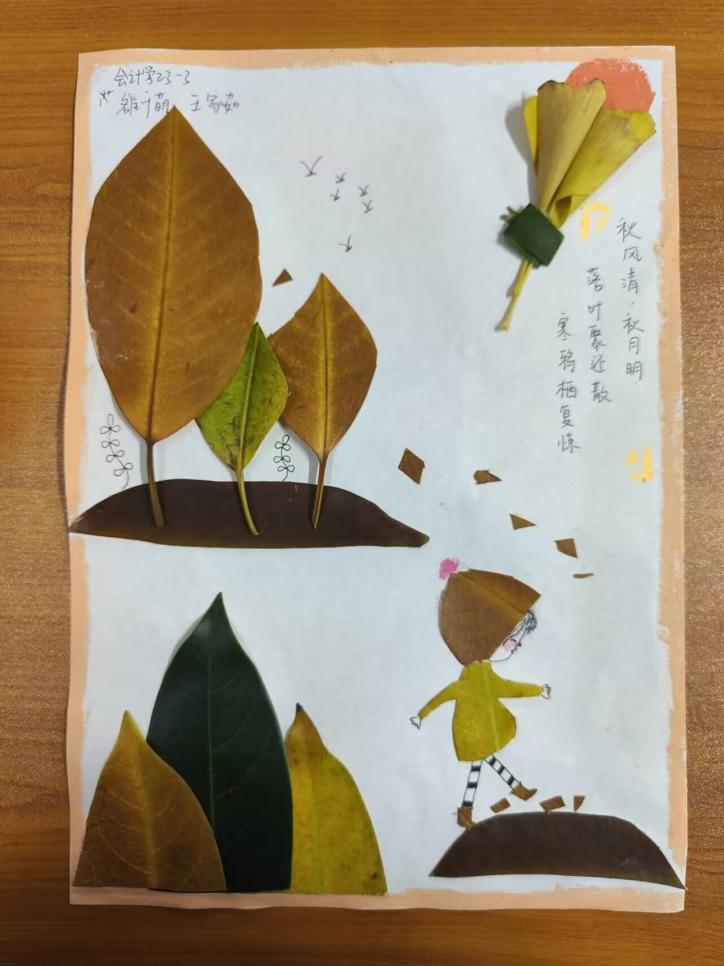 会计学23-3
萌 王家茹
秋风清，秋月明
落叶聚还散
寒鸦栖复惊